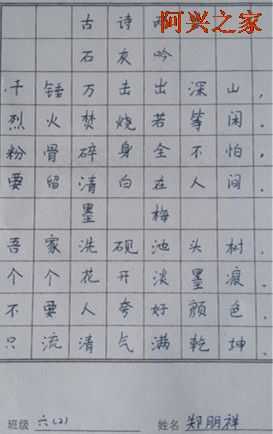 阿兴之家
古诗
石灰吟
千锤万击出深山，
烈火焚烧若等闲。
粉骨碎身全不怕，
要留清白在人间。
墨梅
吾家洗砚池头树，
个个花开淡墨痕。
不要人夸好颜色，
只流清气满乾坤。
班级 六(2) 姓名 郑朋祥